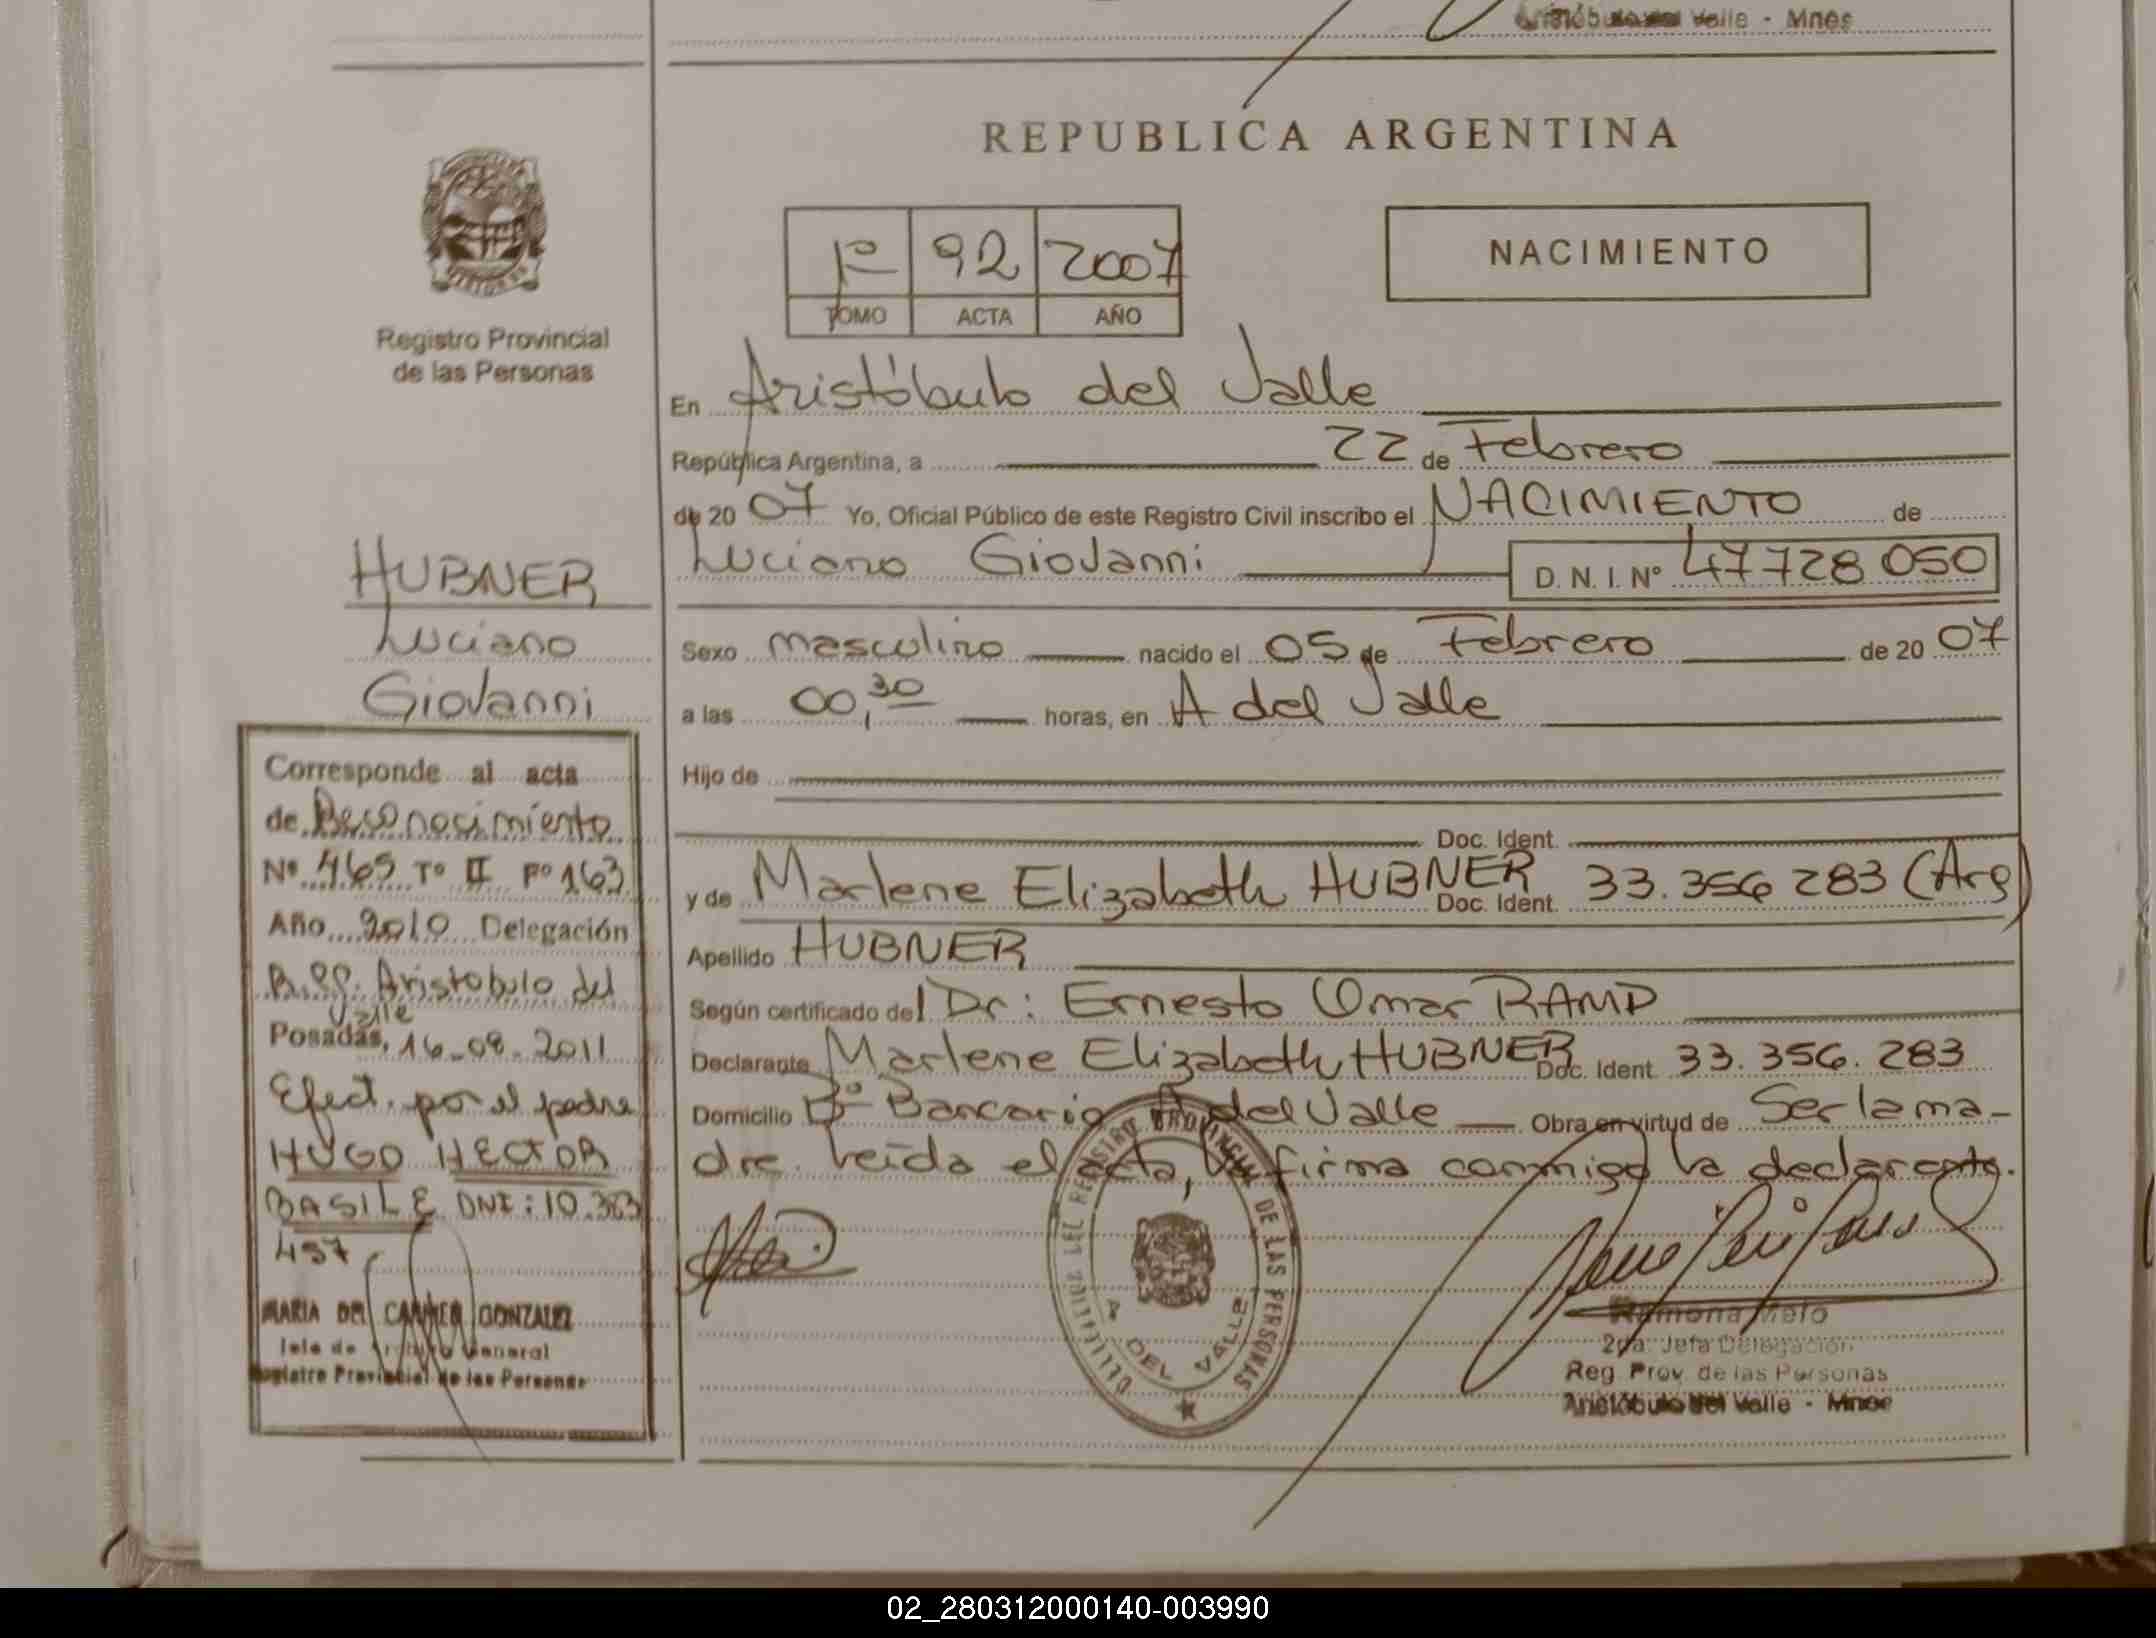 Aristóbulo del Valle - Mnes
REPUBLICA ARGENTINA
Iº 92 2007
TOMO ACTA AÑO
NACIMIENTO
Registro Provincial
de las Personas
En Aristóbulo del Valle
República Argentina, a 22 de Febrero
de 20 07 Yo, Oficial Público de este Registro Civil inscribo el NACIMIENTO de
Luciano Giovanni D. N. I. Nº 47728050
Sexo masculino nacido el 05 de Febrero de 20 07
a las 00,30 horas, en A del Valle
Hijo de
Doc. Ident.
y de Marlene Elizabeth HUBNER Doc. Ident. 33.356283 (Arg)
Apellido HUBNER
Según certificado del Dr: Ernesto Omar RAMP
Declarante Marlene Elizabeth HUBNER Doc. Ident. 33.356.283
Domicilio Bº Bancario A del Valle Obra en virtud de Ser la ma-
dre. Leída el acta, la firma conmigo la declarante.
HUBNER
Luciano
Giovanni
Corresponde al acta
de Reconocimiento
Nº 465 Tº II Fº 163
Año 2010 Delegación
R.PP. Aristobulo del
Valle
Posadas, 16-08-2011
Efect. por el padre
HUGO HECTOR
BASILE DNI: 10.383
457
MARIA DEL CARMEN GONZALEZ
Jefe de Archivo General
Registro Provincial de las Personas
DELEGACION DEL REGISTRO PROVINCIAL DE LAS PERSONAS
A DEL VALLE
Ramona Melo
2da. Jefa Delegación
Reg. Prov. de las Personas
Aristóbulo del Valle - Mnes
02_280312000140-003990